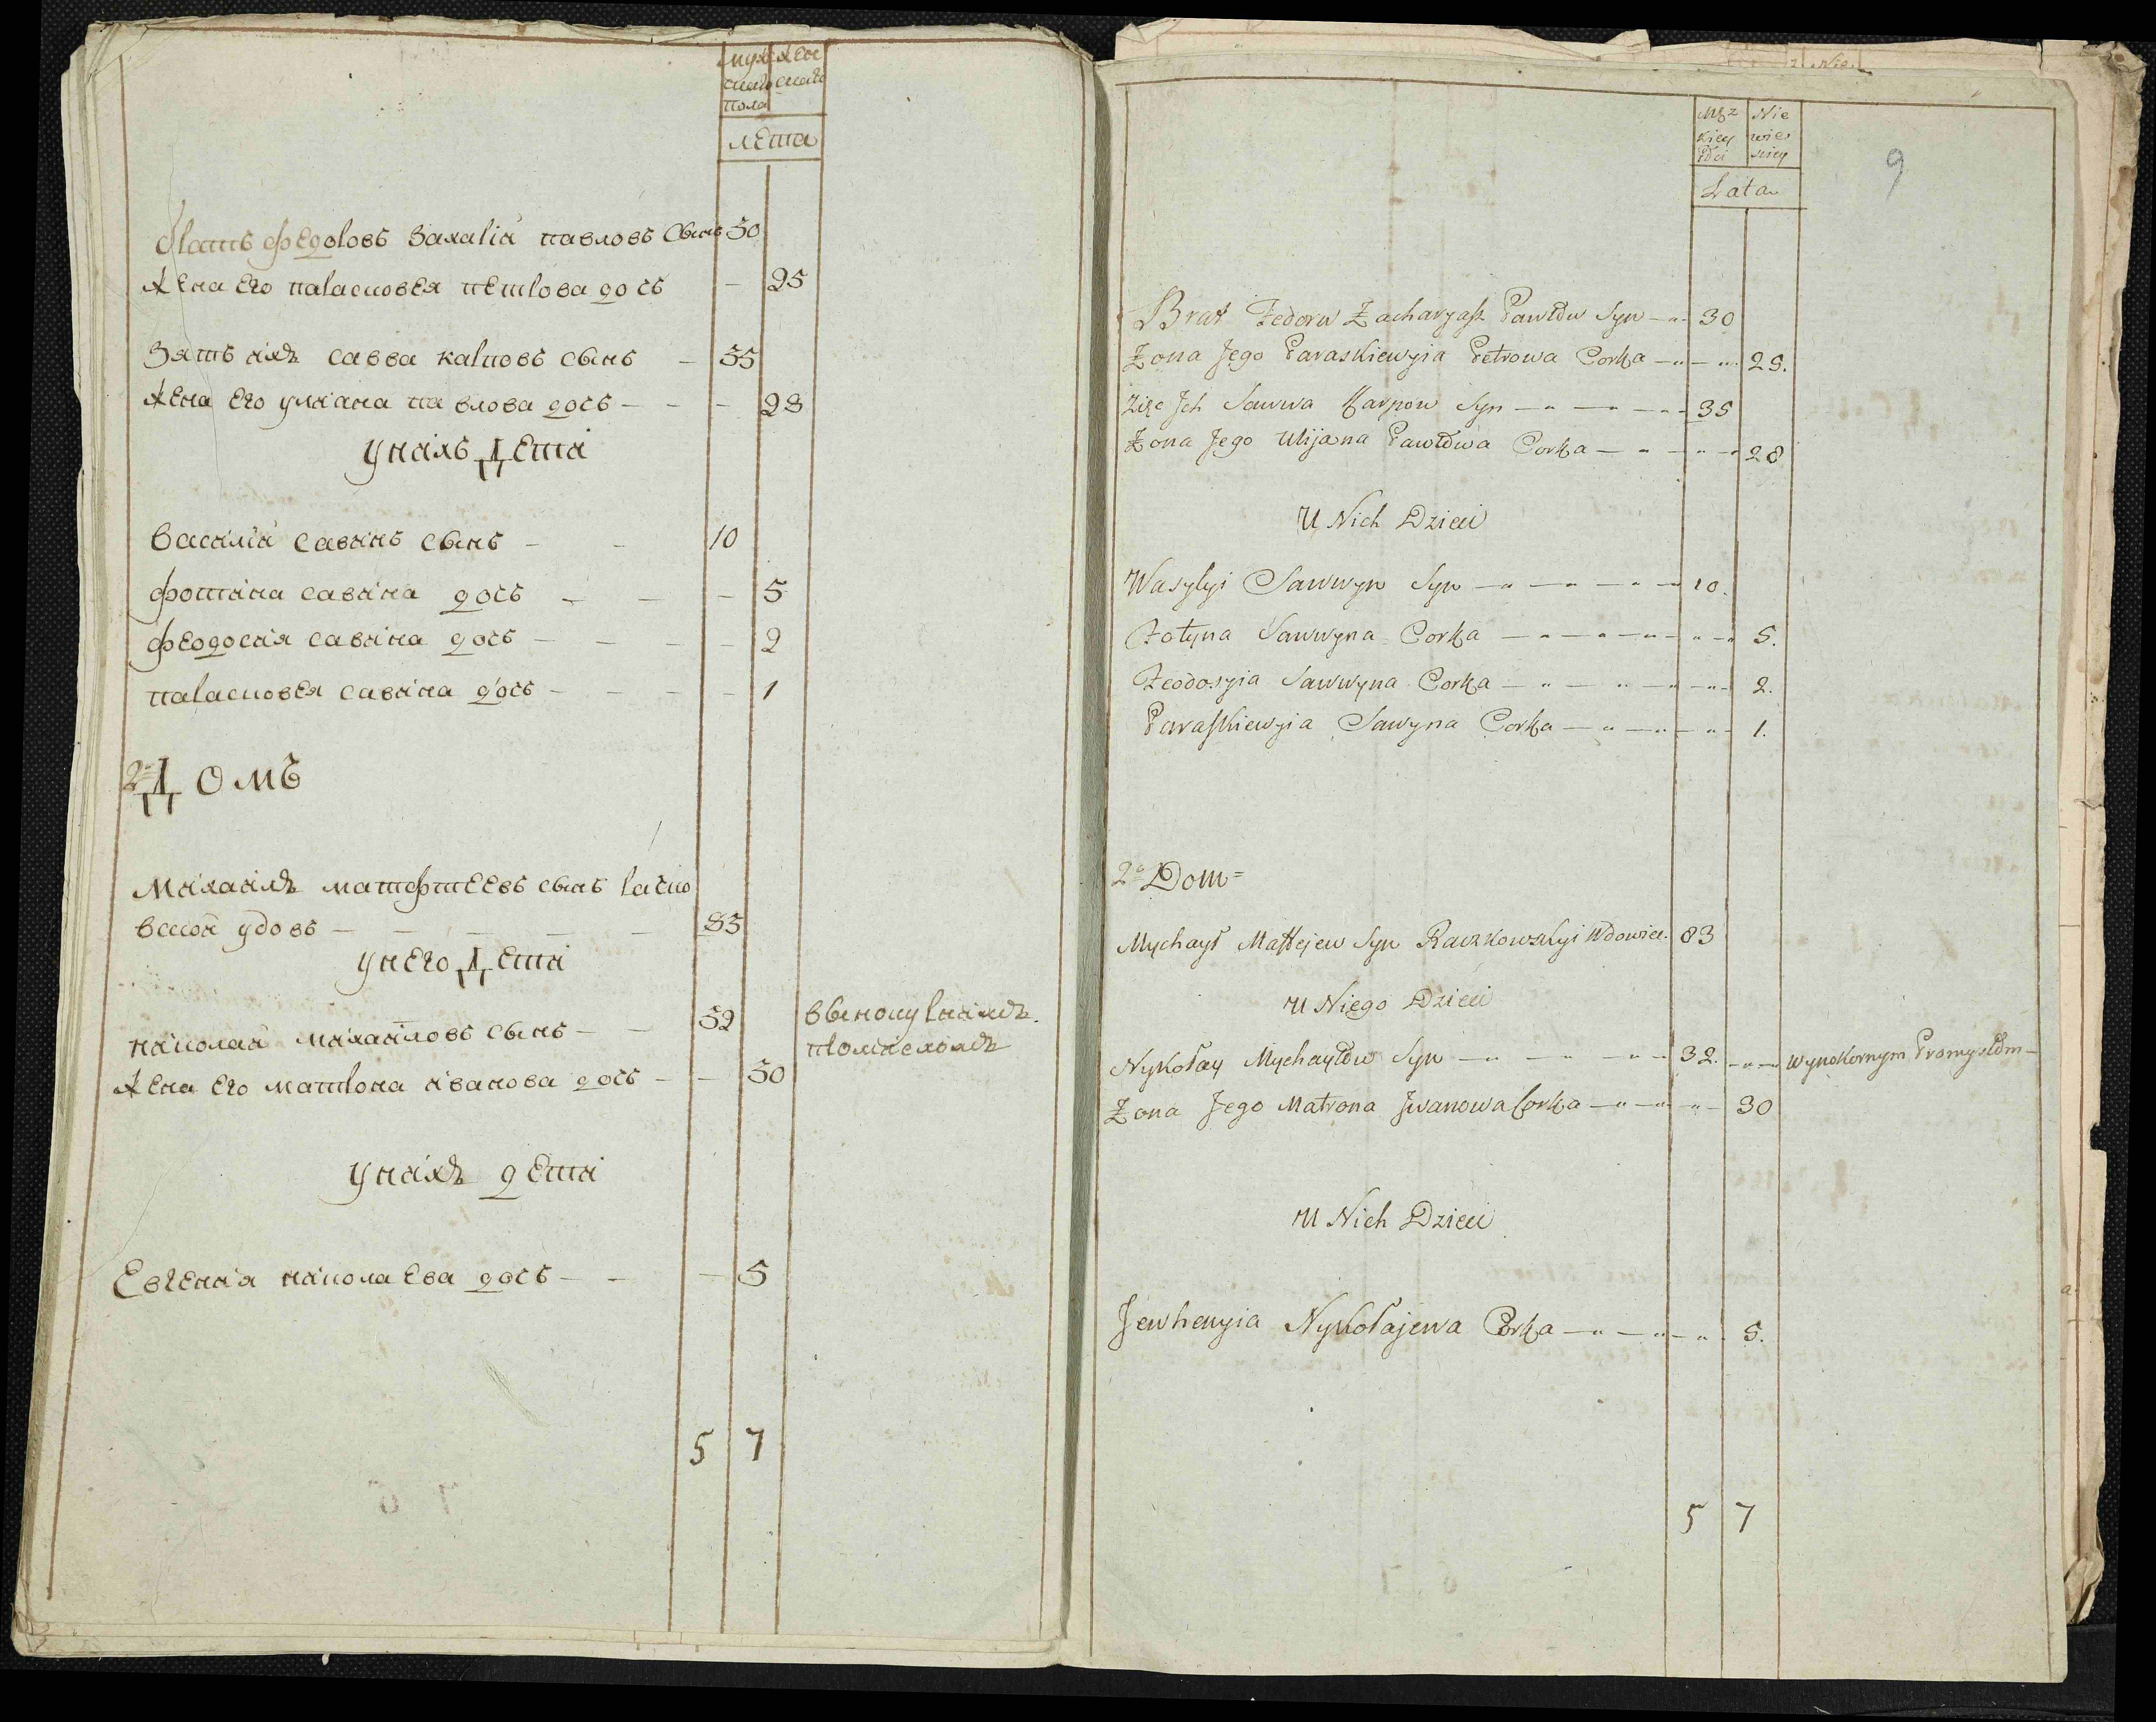 муж жен
скаго скаго
пола
лета
братъ федоровъ Захарій павловъ сынъ 30
жена его парасковея петрова дочь — 25
Зять ихъ савва карповъ сынъ — 35
жена его улиана павлова дочь — — — 28
У нихъ Дети
василій савинъ сынъ — — 10
фотина савина дочь — — — 5
феодосия савина дочь — — — — 2
парасковея савина дочь — — — — 1
2й Домъ
михаилъ матфтеевъ сынъ рачко
вский удовъ — — — — — 83
У него Дети
николай михайловъ сынъ — — 32 в винокурнихъ
промислохъ
жена его матрона иванова дочь — — 30
У нихъ дети
Евгения николаева дочь — — — 5
5 7
Męz Nie
kiey wie
Płci skiey
Lata
9
Brat Fedorw Zacharyasz Pawłow Syn — 30
Żona Jego Paraskiewyia Petrowa Corka — — 25.
Zięc Jch Sawwa Karpow Syn — — — 35
Żona Jego Ulijana Pawłowa Corka — — — 28
U Nich Dzieci
Wasylyi Sawwyn Syn — — — 10.
Fotyna Sawwyna Corka — — — — 5.
Feodosyia Sawwyna Corka — — — — 2.
Paraskiewyia Sawyna Corka — — — 1.
2o Dom=
Mychaył Mattejew Syn Raczkowskyi Wdowiec. 83
U Niego Dzieci
Nykołay Mychayłow Syn — — — 32. — Wynokornym Promysłom —
Żona Jego Matrona Jwanowa Corka — — — 30
U Nich Dzieci
Jewhenyia Nykołajewa Corka — — — 5.
5 7